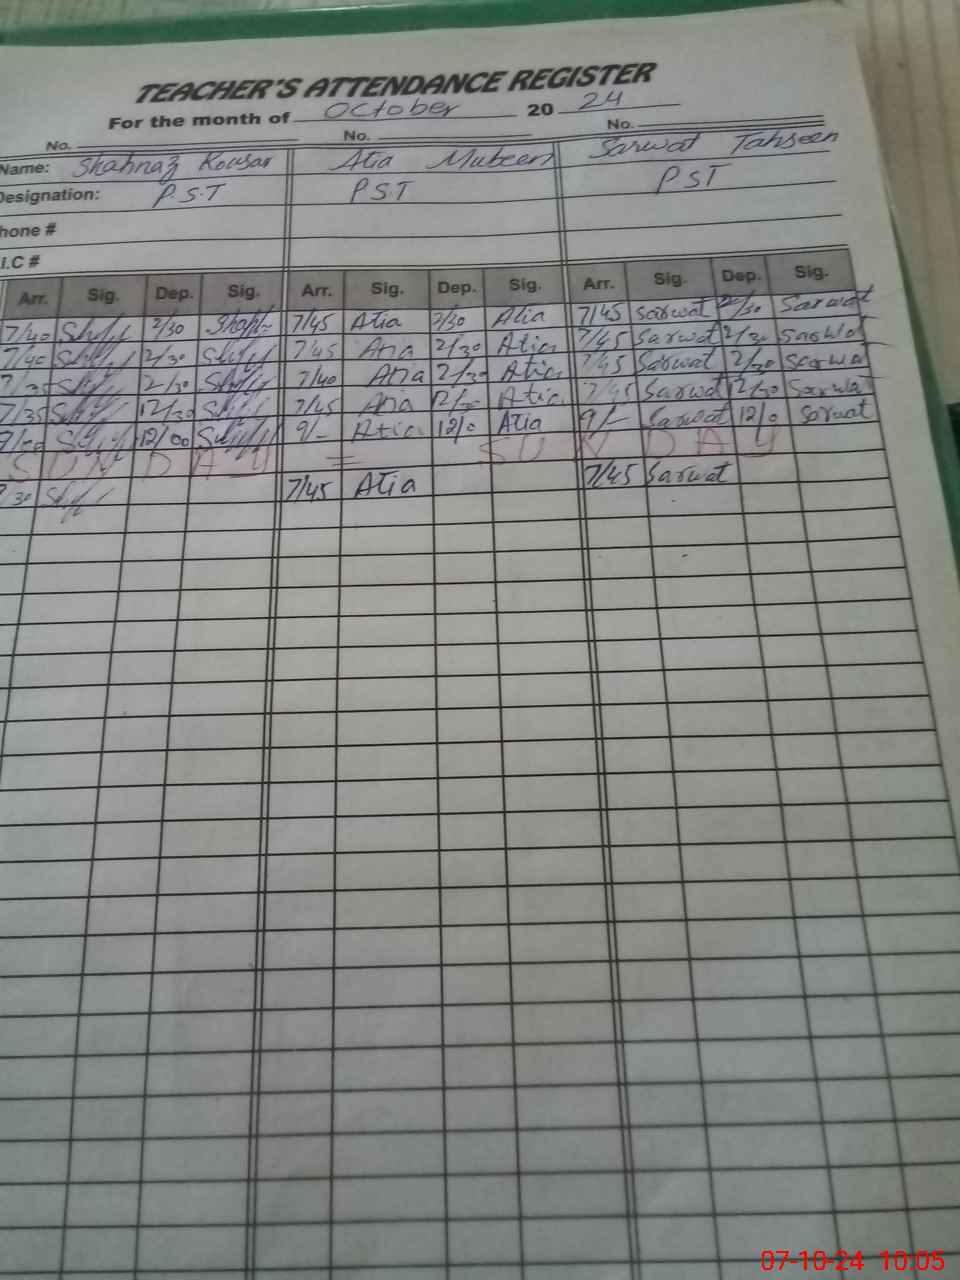 TEACHER'S ATTENDANCE REGISTER
For the month of October 20 24
No. No. No.
Name: Shahnaz Kousar Atia Mubeen Sarwat Tahseen
Designation: P.S.T PST PST
hone #
I.C #
Arr. Sig. Dep. Sig. Arr. Sig. Dep. Sig. Arr. Sig. Dep. Sig.
7/40 2/30 7/45 Atia 2/30 Atia 7/45 Sarwat 2/30 Sarwat
7/40 2/30 7/45 Atia 2/30 Atia 7/45 Sarwat 2/30 Sarwat
7/35 2/30 7/40 Atia 2/30 Atia 7/45 Sarwat 2/30 Sarwa
7/35 12/30 7/45 Atia 12/30 Atia 7/45 Sarwat 12/30 Sarwat
9/00 12/00 9/- Atia 12/0 Atia 9/- Sarwat 12/0 Sarwat
SUNDAY = SUNDAY
30 7/45 Atia 7/45 Sarwat
07-10-24 10:05